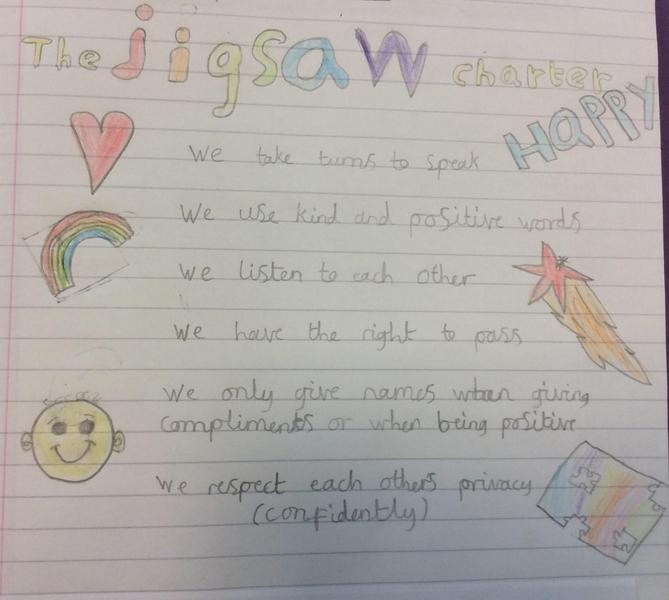 The jigsaw charter
HAPPY
We take turns to speak
We use kind and positive words
We listen to each other
We have the right to pass
We only give names when giving
compliments or when being positive
We respect each others privacy
(confidently)